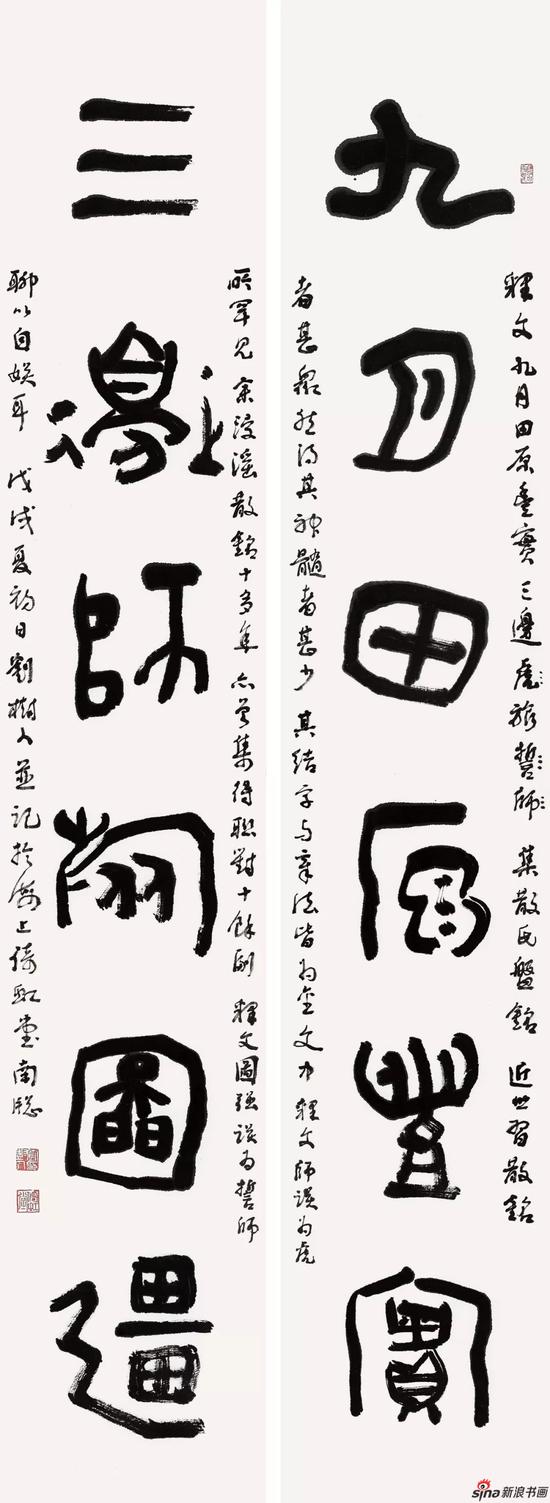 九月田原豐實
釋文 九月田原豐實 三邊虎旅誓師 集散氏盤銘 近世習散銘
者甚眾然得其神髓者甚少 其結字与章法皆為金文中 釋文師誤為虎
三邊師旅圖彊
所罕見 余浸淫散銘十多年 亦曾集得聯對十餘副 釋文圖强誤為誓師
聊以自娛耳 戊戌夏初日劉樹人並記於海上倚虹堂南牕
sina新浪书画